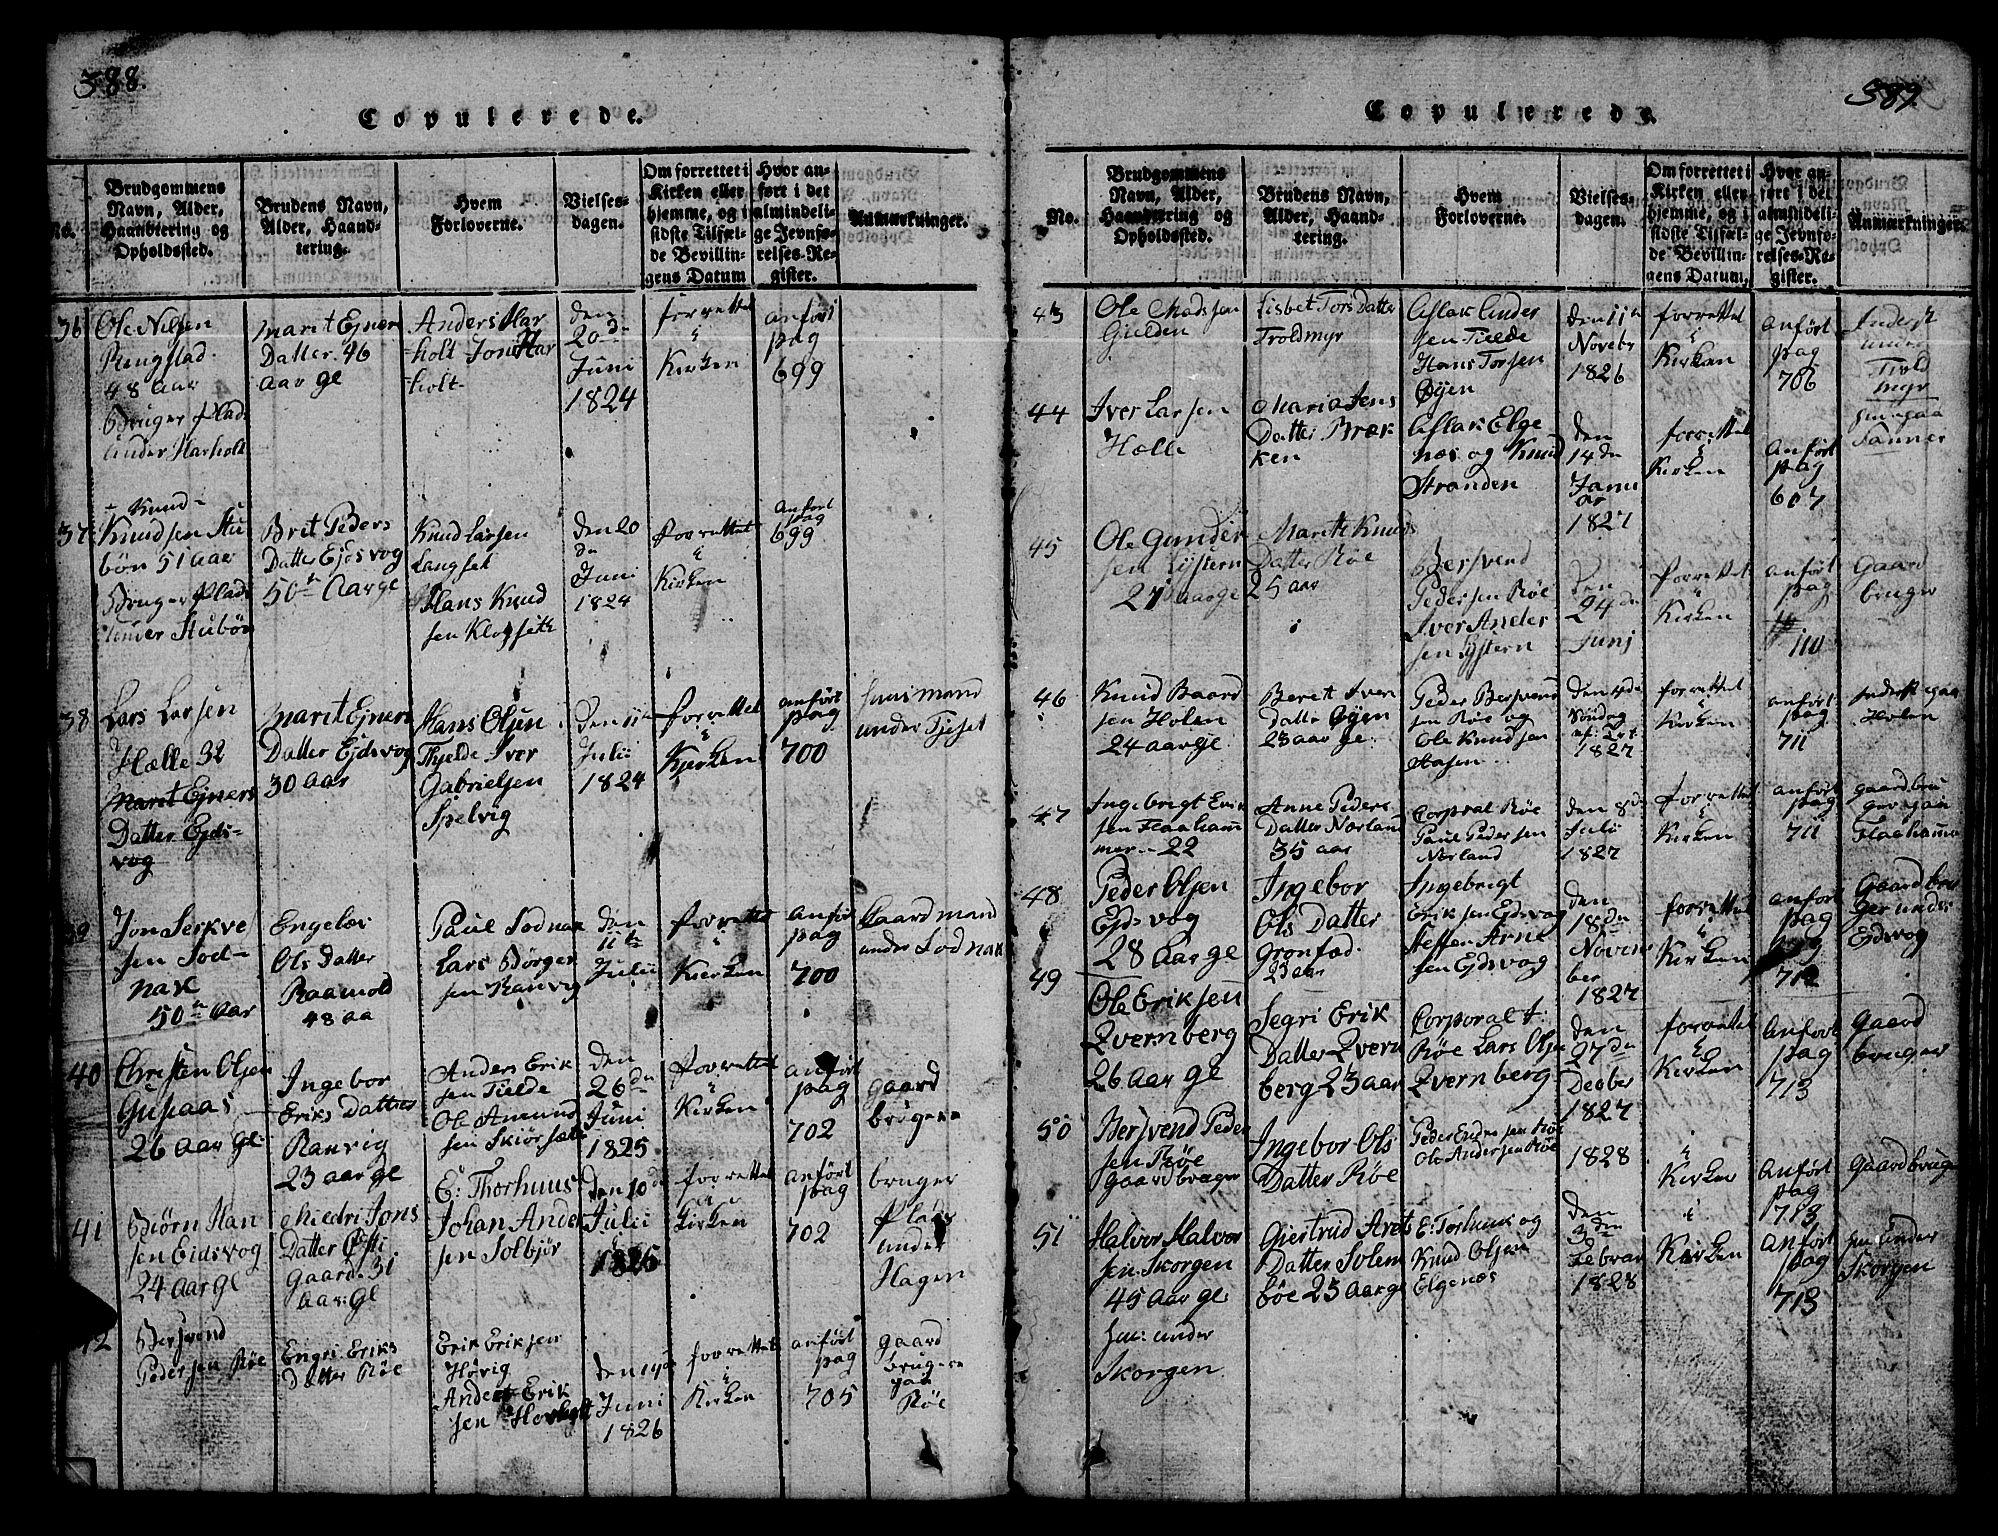 388.
Copulerede.
No.
Brudgommens
Navn, Alder,
Haandtering og
Opholdssted.
Brudens Navn,
Alder, Haand-
tering.
Hvem
Forloverne.
Vielses-
dagen.
Om forrettet i
Kirken eller
hjemme, og i
sidste Tilfæl-
de Bevillin-
gens Datum
Hvor an-
ført i det
almindeli-
ge Jevnfø-
relses-Re-
gister.
Anmærkninger.
36
Ole Nilsen
Ringstad
48 aar
Bruger Plads
under Harholt
Marit Ejners
Datter 46
aar gl
Anders Har
holt Jon Har
holt
den
20de
Juni
1824
forrettet
i
Kirken
anført
pag
699
37
Knud
Knudsen Stu
bön 51 aar
Bruger Plads
under Stubön
Brit Peders
Datter Ejdsvog
50 Aar ge
Knud Larsen
Langset
Hans Knud
sen Klogset
den 20
de
Juni
1824
forrettet
i
Kirken
anført
pag
699
38
Lars Larsen
Hælle 32
Marit Ejners
Datter Ejds-
vog
Marit Ejners
Datter Ejdsvog
30 aar
Hans Olsen
Thjelde Iver
Gabrielsen
Spelvig
den 11te
Julii
1824
forrettet
i
Kjerken
anført
pag
700
huusmand
under Tjeset
39
Jon Serkve
sen Sod-
nak
50 aar
Engebor
Ols Datter
Raamold
48 aa
Paul Sodnak
Lars Börger
sen Ranvig
den
11te
Julii
forrettet
i
Kierken
anført
pag
700
Gaardmand
under Sodnak
40
Christen Olsen
Gusiaas
26 aar gl
Ingebor
Eriks Datter
Ranvig
23 aar gl
Anders Erik
sen Tielde
Ole Amund
sen Skiörsæt
den
26de
Juni
1825
forrettet
i
Kirken
anført
pag
702
gaard
bruger
41
Biörn Han
sen Eidsvog
24 aar gl
Mildri Jons
Datter Östi
Gaard 31
aar gl
E: Thorhuus
Johan Ander
sen Solbjör
den 10de
Julii
1825
forrettet
i
Kirken
anført
pag
702
bruger
Plads
under
Hagen
42
Bersvend
Pedersen Röe
Engri Eriks
Datter Röe
Erik Eriksen
Hövig
Anders Erik
sen
den 19de
Juni
1826
forrettet
i
Kirken
anført
pag
705
gaard
bruger
paa
Röe
389
Copulerede.
No.
Brudgommens
Navn, Alder,
Haandtering og
Opholdssted.
Brudens Navn,
Alder, Haand-
tering.
Hvem
Forloverne.
Vielses-
dagen.
Om forrettet i
Kirken eller
hjemme, og i
sidste Tilfæl-
de Bevillin-
gens Datum.
Hvor an-
ført i det
almindeli-
ge Jevnfø-
relses-Re-
gister.
Anmærkninger.
43
Ole Madsen
Gielden
Lisbet Tors Datter
Troldmyr
Aslak Ander
sen Tielde
Hans Torsen
Öyen
den 11te
Novebr
1826
forrettet
i
Kirken
anført
pag
706
under
Trold
myr
44
Iver Larsen
Hælle
Maria Jens
Datter Bræk
ken
Aslak Elge
næs og Knud
Stranden
den
14de
Janu
ar
1827
forrettet
i
Kirken
anført
pag
607
45
Ole Gunder
sen Lystern
27 aar ge
Marit Knuds
Datter Röe
25 aar
Bersvend
Pedersen Röe
Iver Ander
sen Lystern
den
24de
Junj
forrettet
i
Kirken
anført
pag
110
Gaard
bruger
46
Knud Baard
sen Holen
24 aar ge
Berett Iver
Datter Öyen
23 aar ge
Peder Bersvend
sen Röe og
Ole Knudsen
den 4de
Söndag
1827
forrettet
i
Kirken
anført
pag
711
Holen
47
Ingebrigt Erik
sen Flaaham
mer 22
Anne Peders
Datter Norland
35 aar
Corpral Röe
Paul Pedersen
Norland
den 8de
Julii
1827
forrettet
i
Kirken
anført
pag
711
gaardbru
ger paa
Flaahamme
48
Peder Olsen
Ejdsvog
28 Aar ge
Ingebor
Ols Datter
Gronfæd
23 aar
Ingebrigt
Eriksen Ejdsvog
Steffen Arne
sen Ejdsvog
den
18de
Novem
ber
1827
forrettet
i
Kirken
anført
pag
712
Gaardbru
ger under
Ejdsvog
49
Ole Eriksen
Qvernberg
26 aar ge
Segri Erik
Datter Qvern
berg 23 aar
Corporal
Röe Lars Olsen
Qvernberg
den
27de
Decber
1827
forrettet
i
Kirken
anført
pag
713
Gaard
bruger
50
Bersvend Peder
sen Röe
gaardbruger
Ingebor Ols
Datter Röe
Ole Andersen Röe
1828
i
Kirken
anført
pag
713
Gaardbruger
51
Halvor Halvor
sen Skorgen
45 aar ge
Hm: under
Skorgen
Giertrud Arets
Datter Solem
böe 25 aar ge
E: Torhuus og
Knud Olsen
Elgenæs
den
3die
Febrar
1828
i
Kirken
anført
pag
713
under
Skorgen